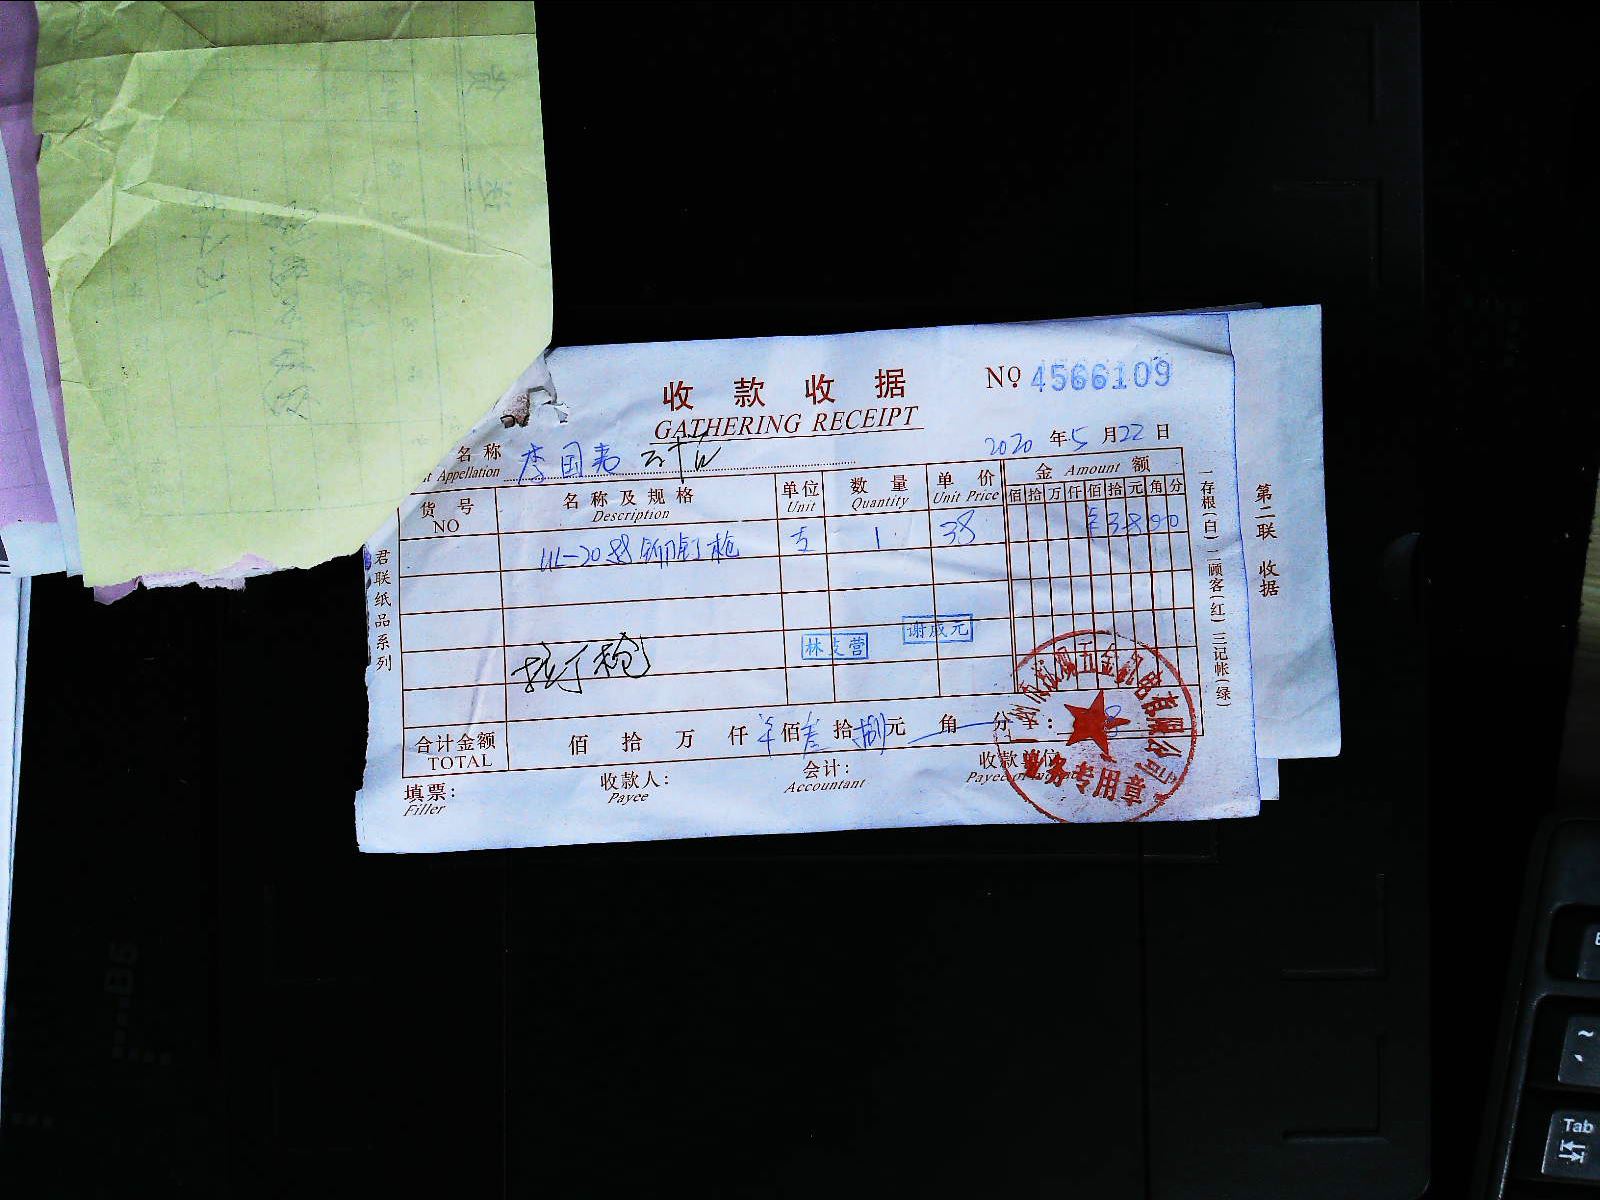 收款收据
GATHERING RECEIPT
No. 4566109
名称 李国
t Appellation
2020年5月22日
货号 名称及规格 单位 数量 单价 金额
NO Description Unit Quantity Unit Price Amount
佰拾万仟佰拾元角分
20 铆钉枪 支 1 38 3800
林 营
谢成元
拉丁枪
合计金额 佰 拾 万 仟 佰叁拾捌元 角 分
TOTAL
填票: 收款人: 会计: 收款单位
Filler Payee Accountant Payee
五金机电有限公司
业务专用章
君联纸品系列
一存根(白)二顾客(红)三记帐(绿)
第二联 收据
Tab